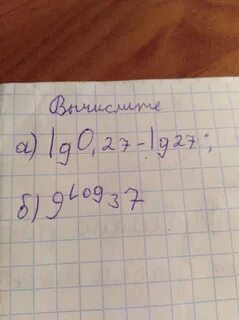 Вычислите
а) lg0,27-lg27;
б) 9^log₃7